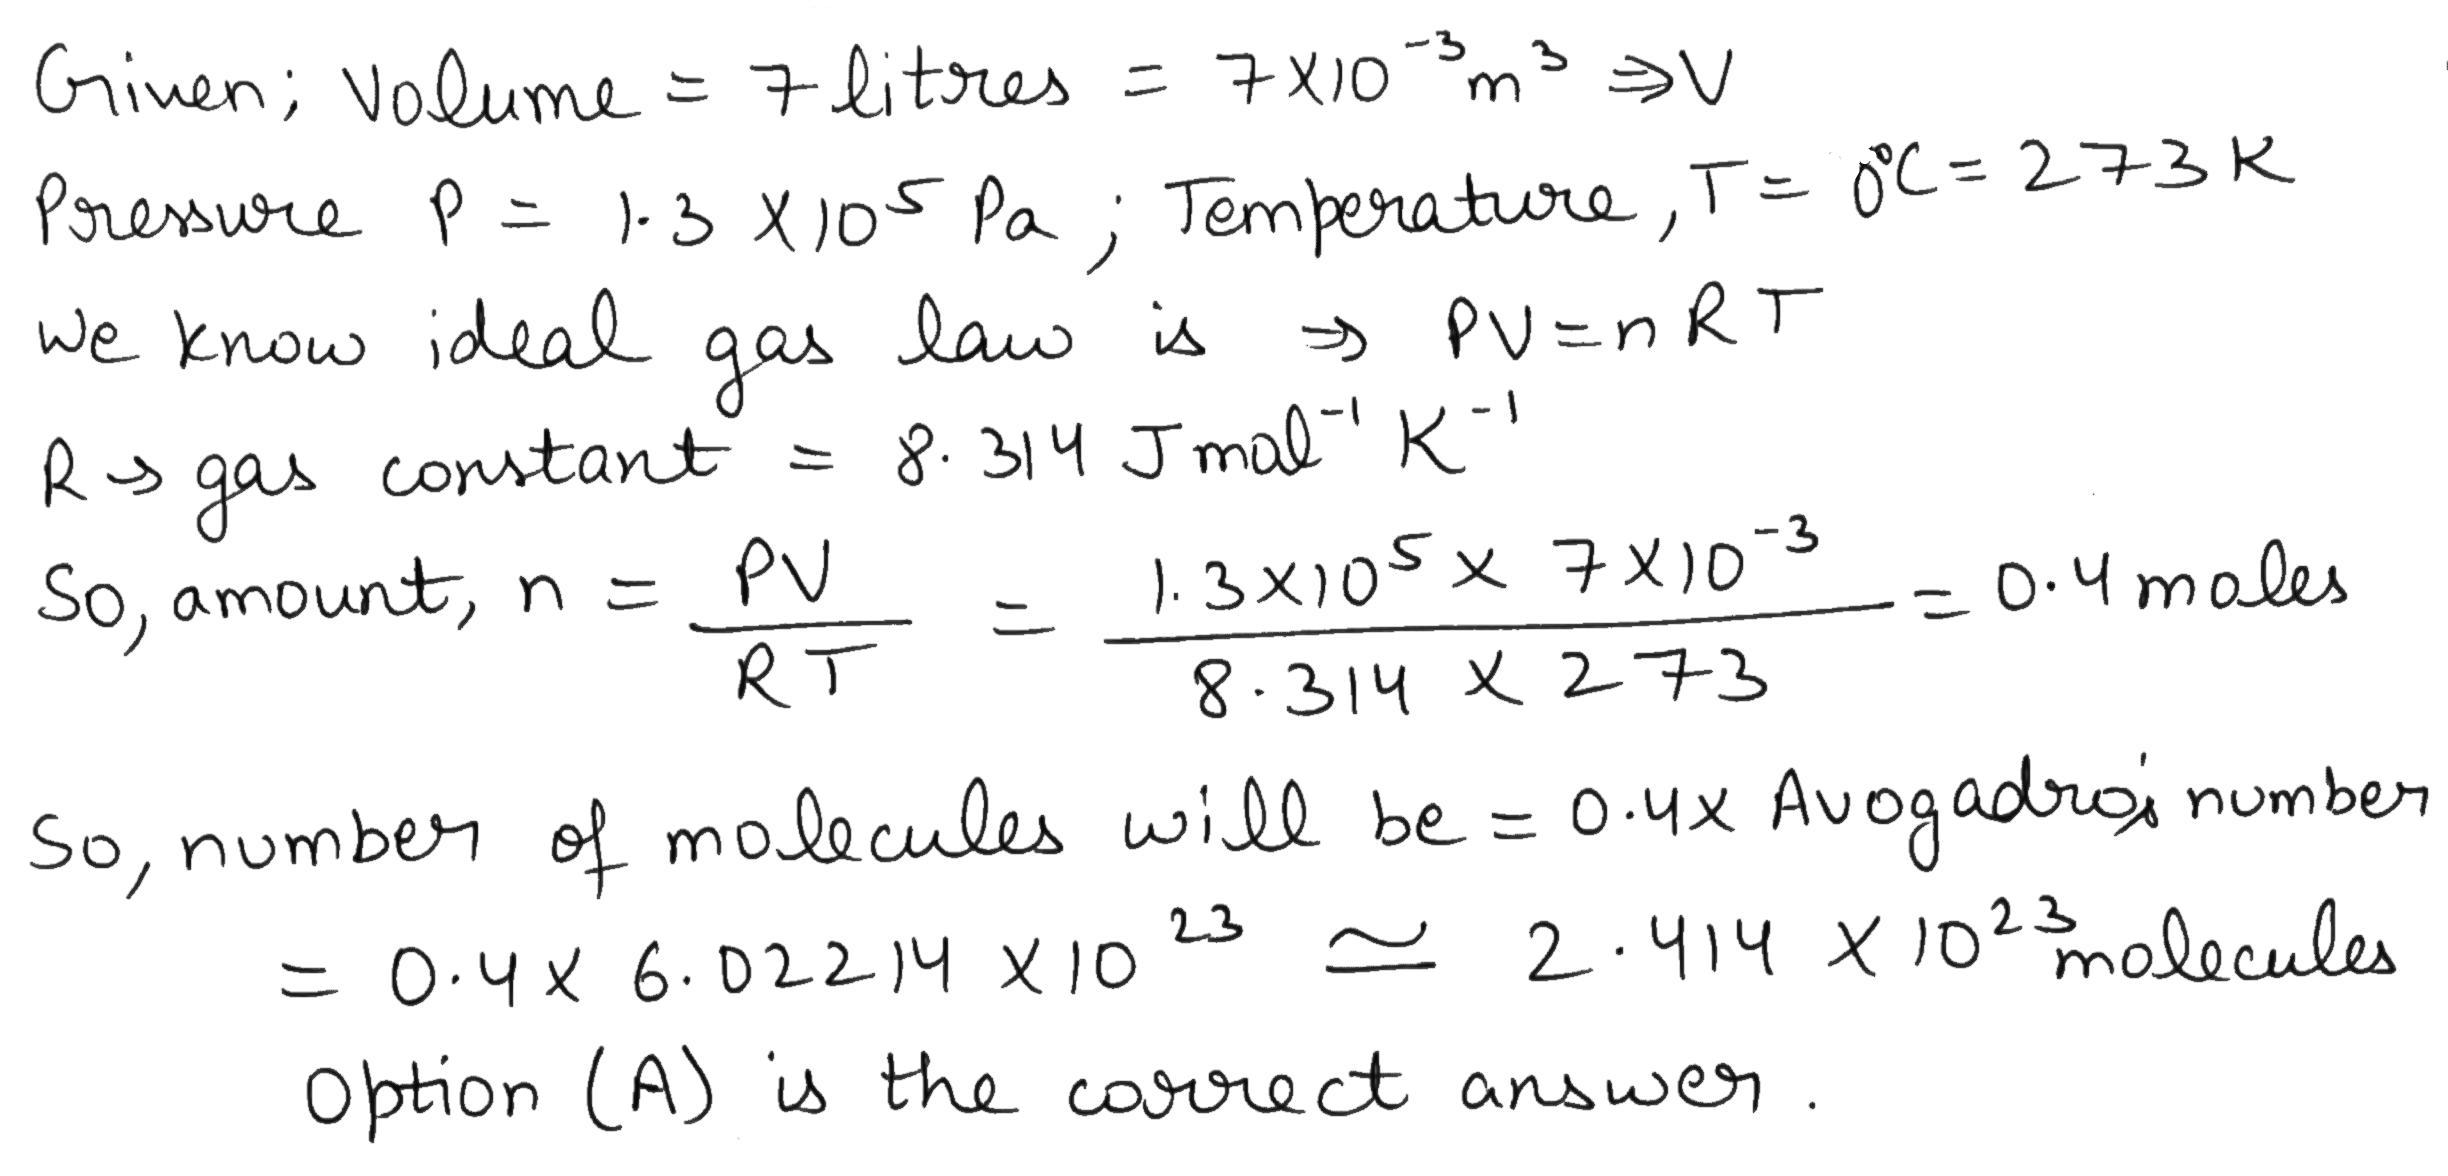 Given; Volume = 7 litres = 7×10⁻³ m³ ⇒ V
Pressure P = 1.3 ×10⁵ Pa ; Temperature, T = 0°C = 273 K
We know ideal gas law is ⇒ PV = nRT
R → gas constant = 8.314 J mol⁻¹ K⁻¹
So, amount, n = PV/RT = 1.3×10⁵ × 7×10⁻³ / 8.314 × 273 = 0.4 moles
So, number of molecules will be = 0.4× Avogadro's number
= 0.4 × 6.02214 ×10²³ ≃ 2.414 × 10²³ molecules
Option (A) is the correct answer.